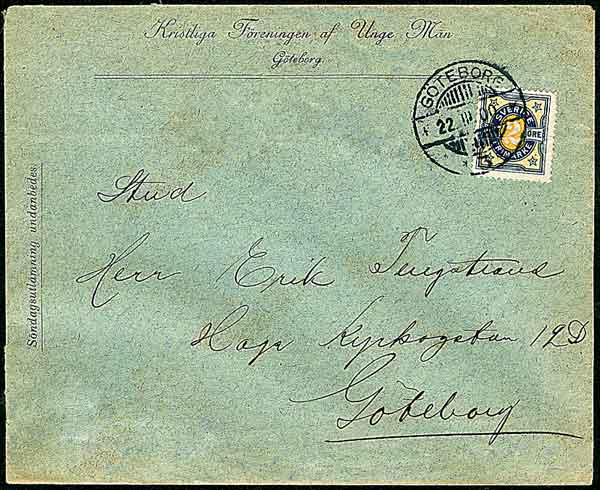 Kristliga Föreningen af Unge Män
Göteborg.
GÖTEBORG
22 III 00
SVERIGE
2 ÖRE
FRIMÄRKE
Söndagsutlämning undanbedes
Stud
Herr Erik Tengstrand
Haga Kyrkogatan 12D
Göteborg